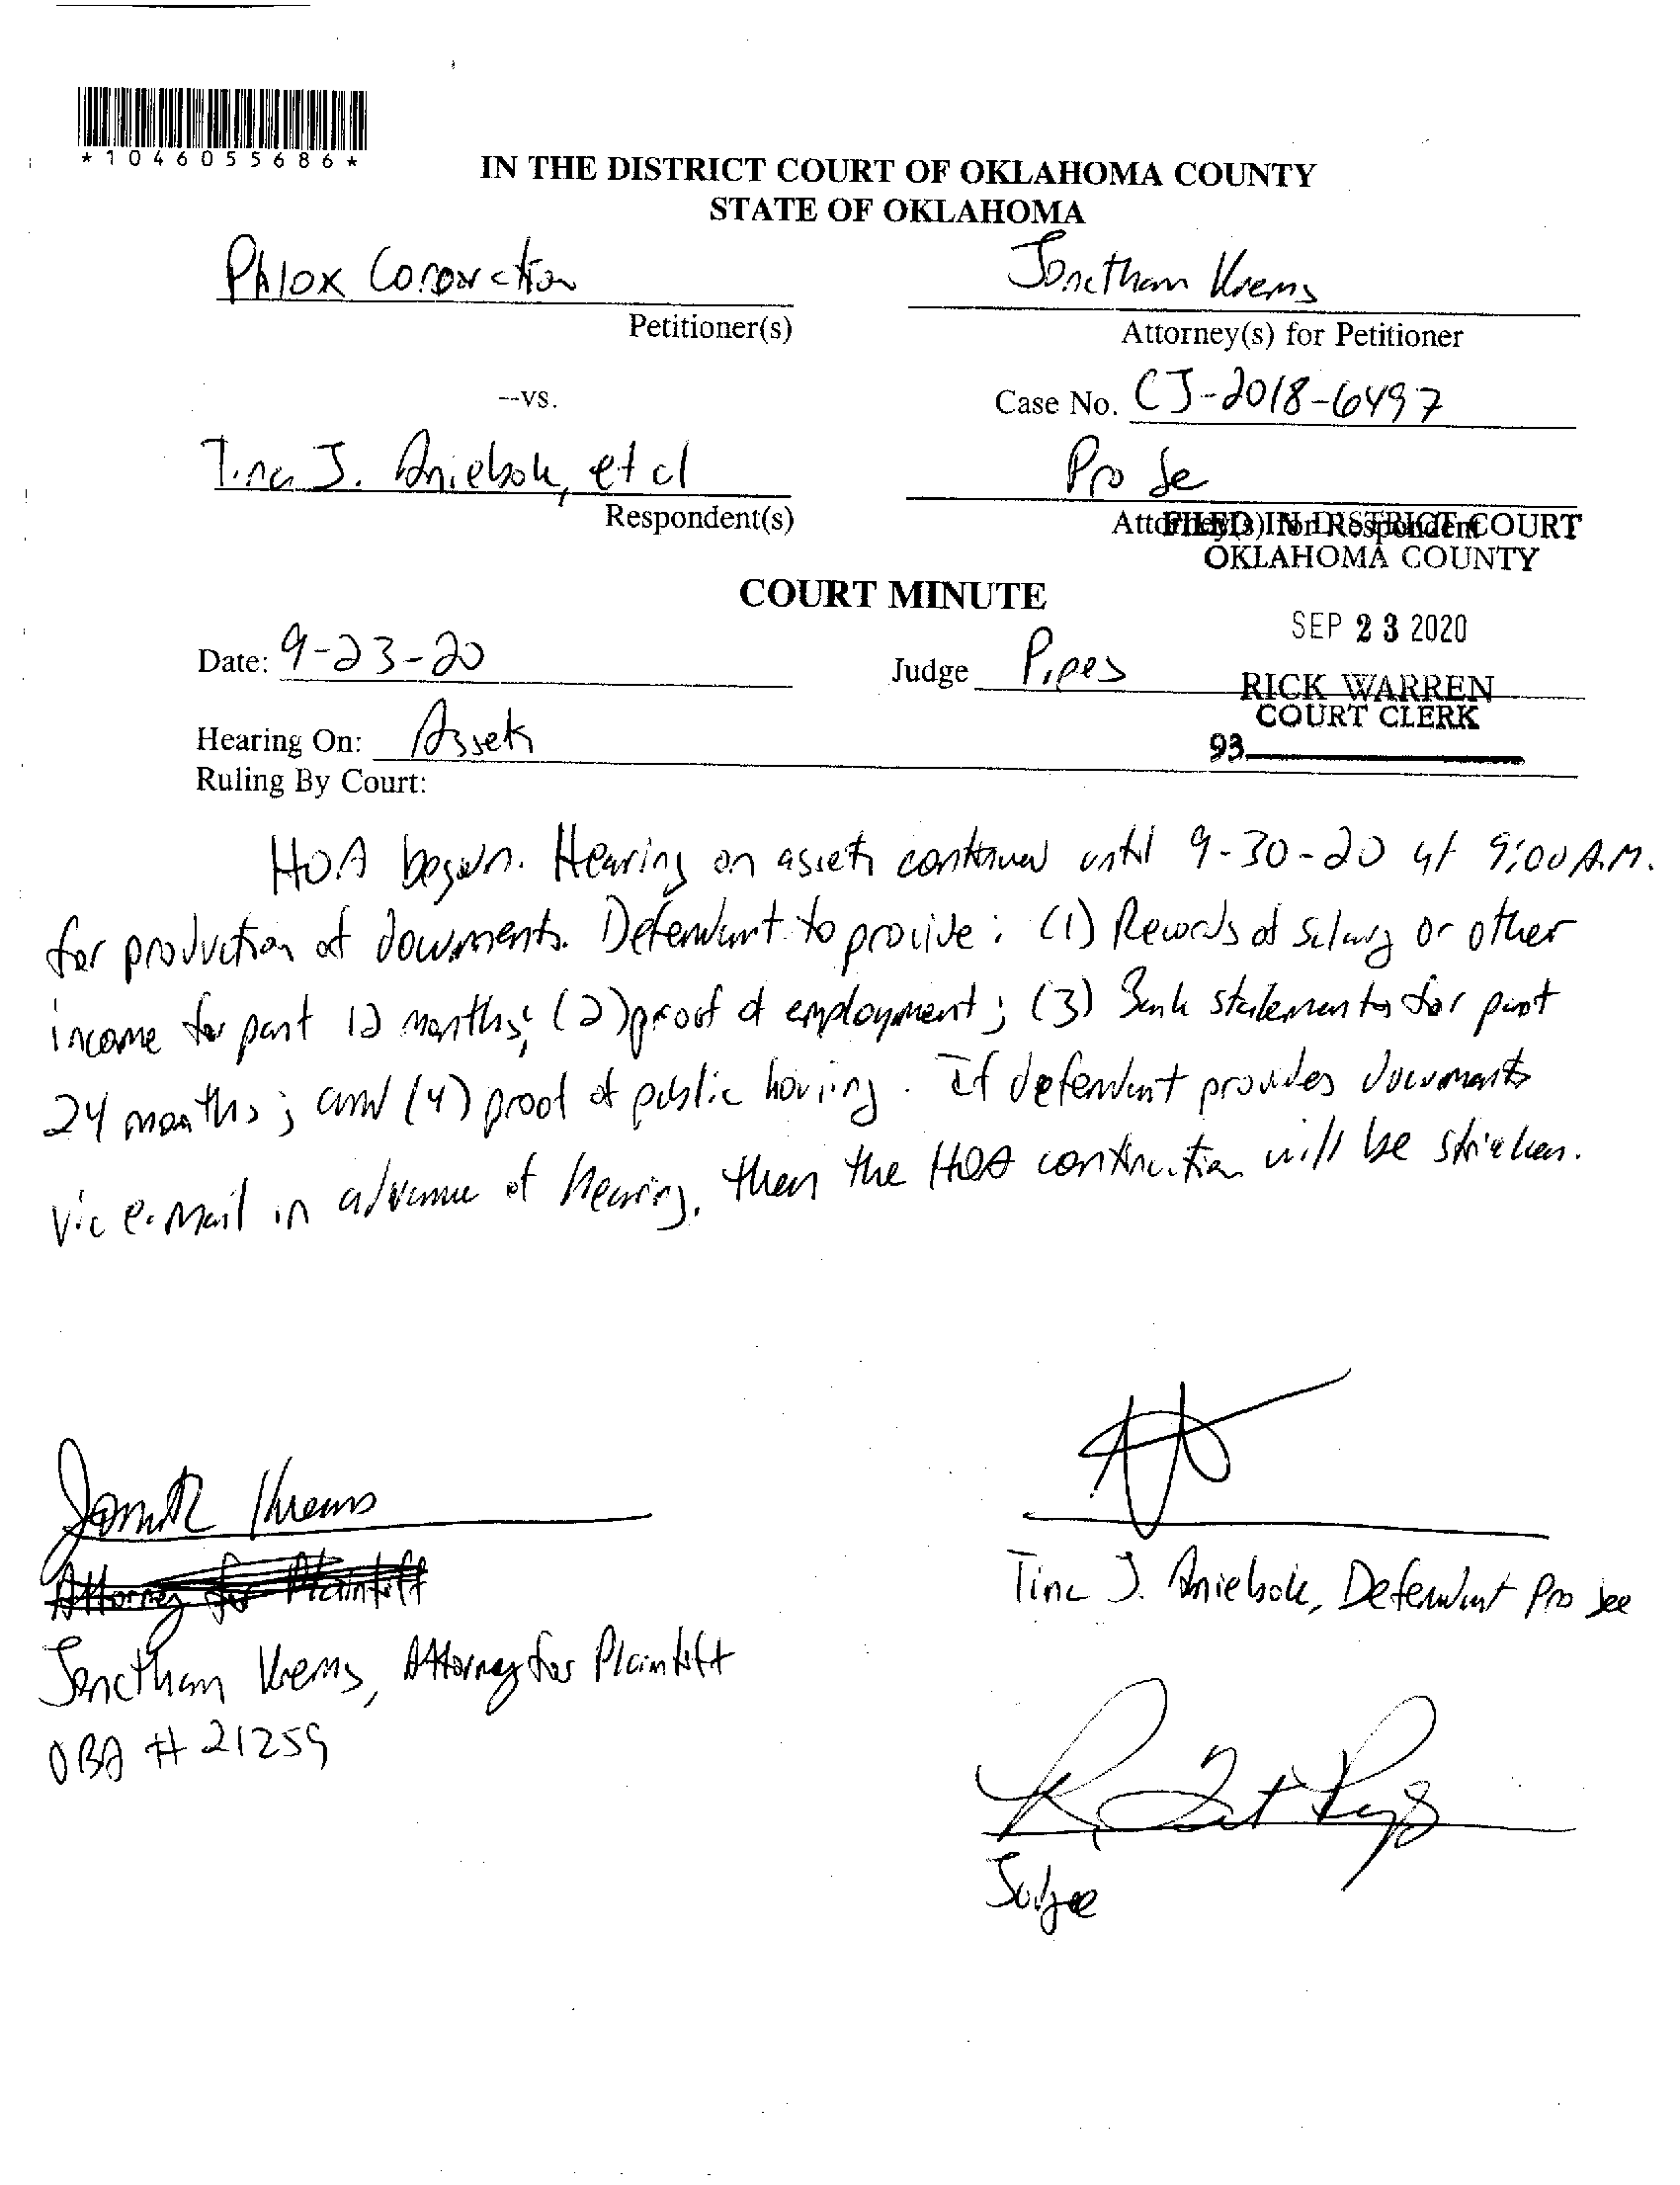 *1046055686*
IN THE DISTRICT COURT OF OKLAHOMA COUNTY
STATE OF OKLAHOMA
Phlox Corporation
Petitioner(s)
Jonathan Krems
Attorney(s) for Petitioner
--vs.
Case No. CJ-2018-6497
Tina J. Aniebok, et al
Respondent(s)
Pro Se
Attorney(s) for Respondent
FILED IN DISTRICT COURT
OKLAHOMA COUNTY
COURT MINUTE
SEP 23 2020
Date: 9-23-20
Judge Pipes
RICK WARREN
COURT CLERK
Hearing On: Assets
93
Ruling By Court:
HOA begun. Hearing on assets continued until 9-30-20 at 9:00 A.M.
for production of documents. Defendant to provide: (1) Records of salary or other
income for past 12 months; (2) proof of employment; (3) Bank statements for past
24 months; and (4) proof of public housing. If defendant provides documents
via e-mail in advance of hearing, then the HOA continuation will be stricken.
Attorney for Plaintiff
Tina J. Aniebok, Defendant Pro See
Jonathan Krems, Attorney for Plaintiff
OBA # 21259
Judge